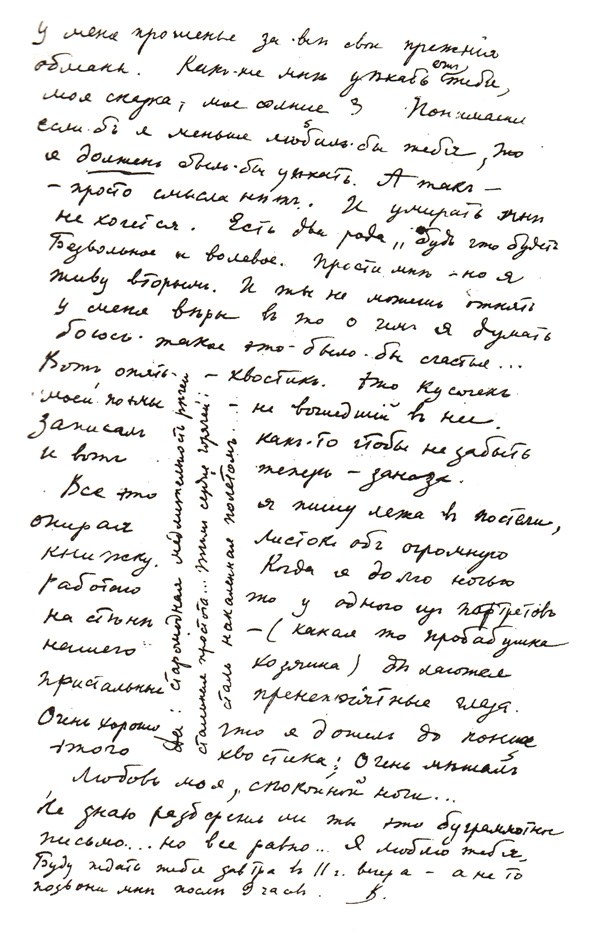 у меня прощенье за всѣ свои прежнiя
обманы. Какъ-же мнѣ уѣхать отъ тебя,
моя сказка, мое солнце? Понимаешь
если-бъ я меньше любилъ-бы тебя, то
я долженъ былъ-бы уѣхать. А такъ –
– просто смысла нѣтъ. И умирать мнѣ
не хочется. Есть два рода „будь что будетъ
Безвольное и волевое. Прости мнѣ – но я
живу вторымъ. И ты не можешь отнять
у меня вѣры въ то о чемъ я думать
боюсь – такое это было-бы счастье...
Вотъ опять – – хвостикъ. Это кусочекъ
моей поэмы не вошедшiй въ нее.
Записалъ какъ-то чтобы не забыть
и вотъ теперь – заноза.
Все это я пишу лежа въ постели,
опирая листокъ объ огромную
книжку. Когда я долго ночью
работаю то у одного изъ портретовъ
на стѣнѣ – (какая то пробабушка
нашего хозяина) дѣлаются
пристальные пренепрiятные глаза.
Очень хорошо что я дошелъ до конца
этого хвостика; очень мѣшалъ
Да: старомодная медлительность рѣчей
стальная простота... Тѣмъ сердце горячѣй:
сталь накаленная полетомъ...
Любовь моя, спокойной ночи...
Не знаю разберешь ли ты это безграмотное
письмо... но все равно... Я люблю тебя,
Буду ждать тебя завтра въ 11 г. вечера – а не то
позвони мнѣ послѣ 9 часовъ. В.